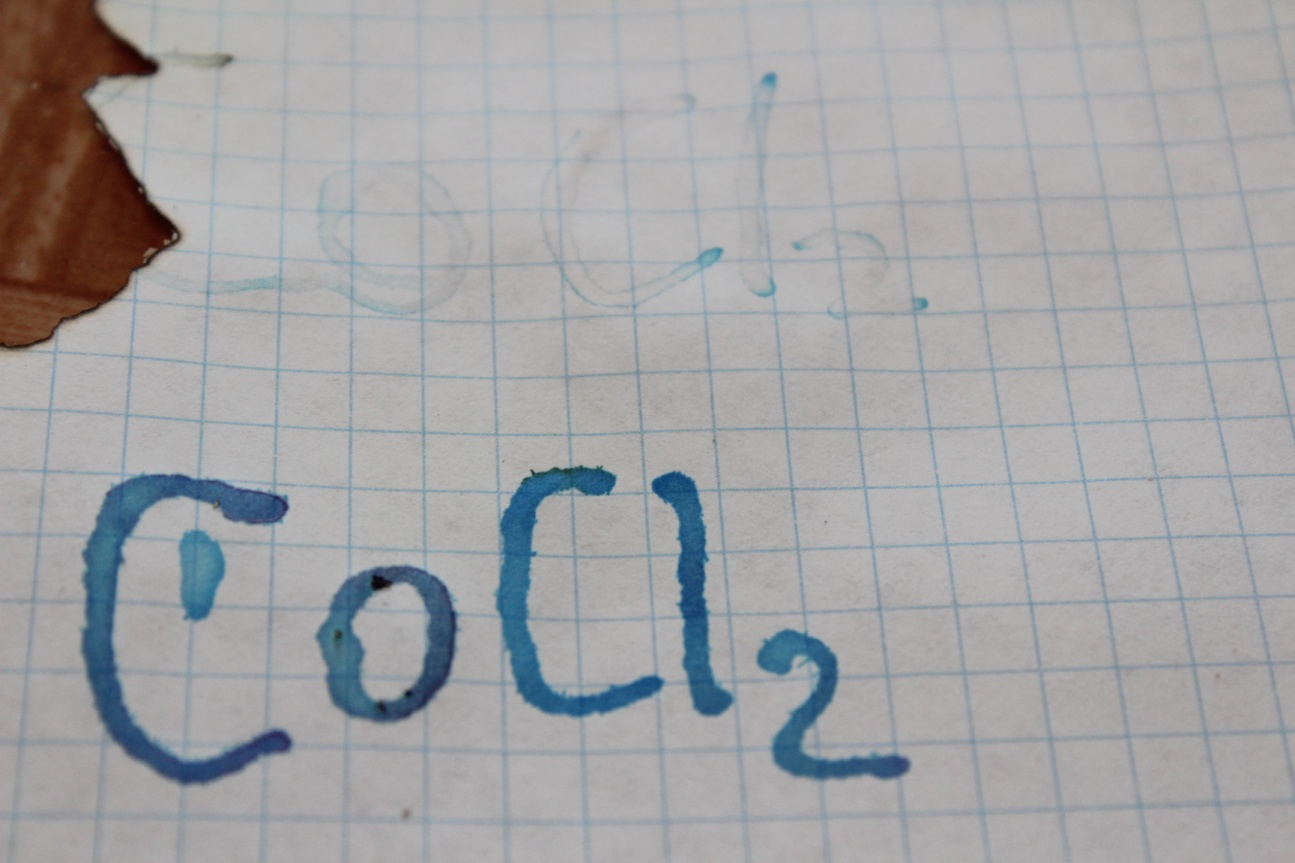 CoCl₂
CoCl₂